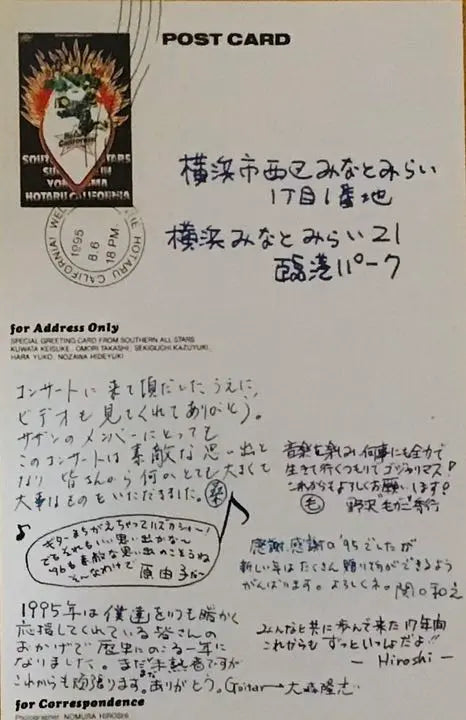 POST CARD
Hotaru
California
SOUTHERN ALL STARS
HOTARU CALIFORNIA
THE HOTARU CALIFORNIA!
1995
8.6
18 PM
横浜市西区みなとみらい
1丁目1番地
横浜みなとみらい21
臨港パーク
for Address Only
SPECIAL GREETING CARD FROM SOUTHERN ALL STARS
KUWATA KEISUKE, OMORI TAKASHI, SEKIGUCHI KAZUYUKI,
HARA YUKO, NOZAWA HIDEYUKI
コンサートに来て頂だいたうえに、
ビデオも見てくれてありがとう。
サザンのメンバーにとっても
このコンサートは素敵な思い出と
なり皆さんから何かとても大きくて
大事なものをいただきました。桑
音楽を楽しみ、何事にも全力で
生きて行くつもりでゴジラリマス!
これからもよろしくお願いします!
毛 野沢"毛ガニ"秀行
ギターまちがえちゃってハズカシャ〜!
でもそれもいい思い出かな〜
'96も素敵な思い出つくろうね
そんなわけで 原由子だ〜
感謝、感謝の'95でしたが
新しい年はたくさん贈り物ができるよう
がんばります。よろしくネ。関口和之
1995年は僕達をいつも暖かく
応援してくれている皆さんの
おかげで歴史にのこる一年に
なりました。まだ未熟者ですが
これからも頑張ります。ありがとう。Guitar→大森隆志
みんなと共に歩んで来た17年間
これからもずっといっしょだよ!!
— Hiroshi —
for Correspondence
Photographer NOMURA HIROSHI